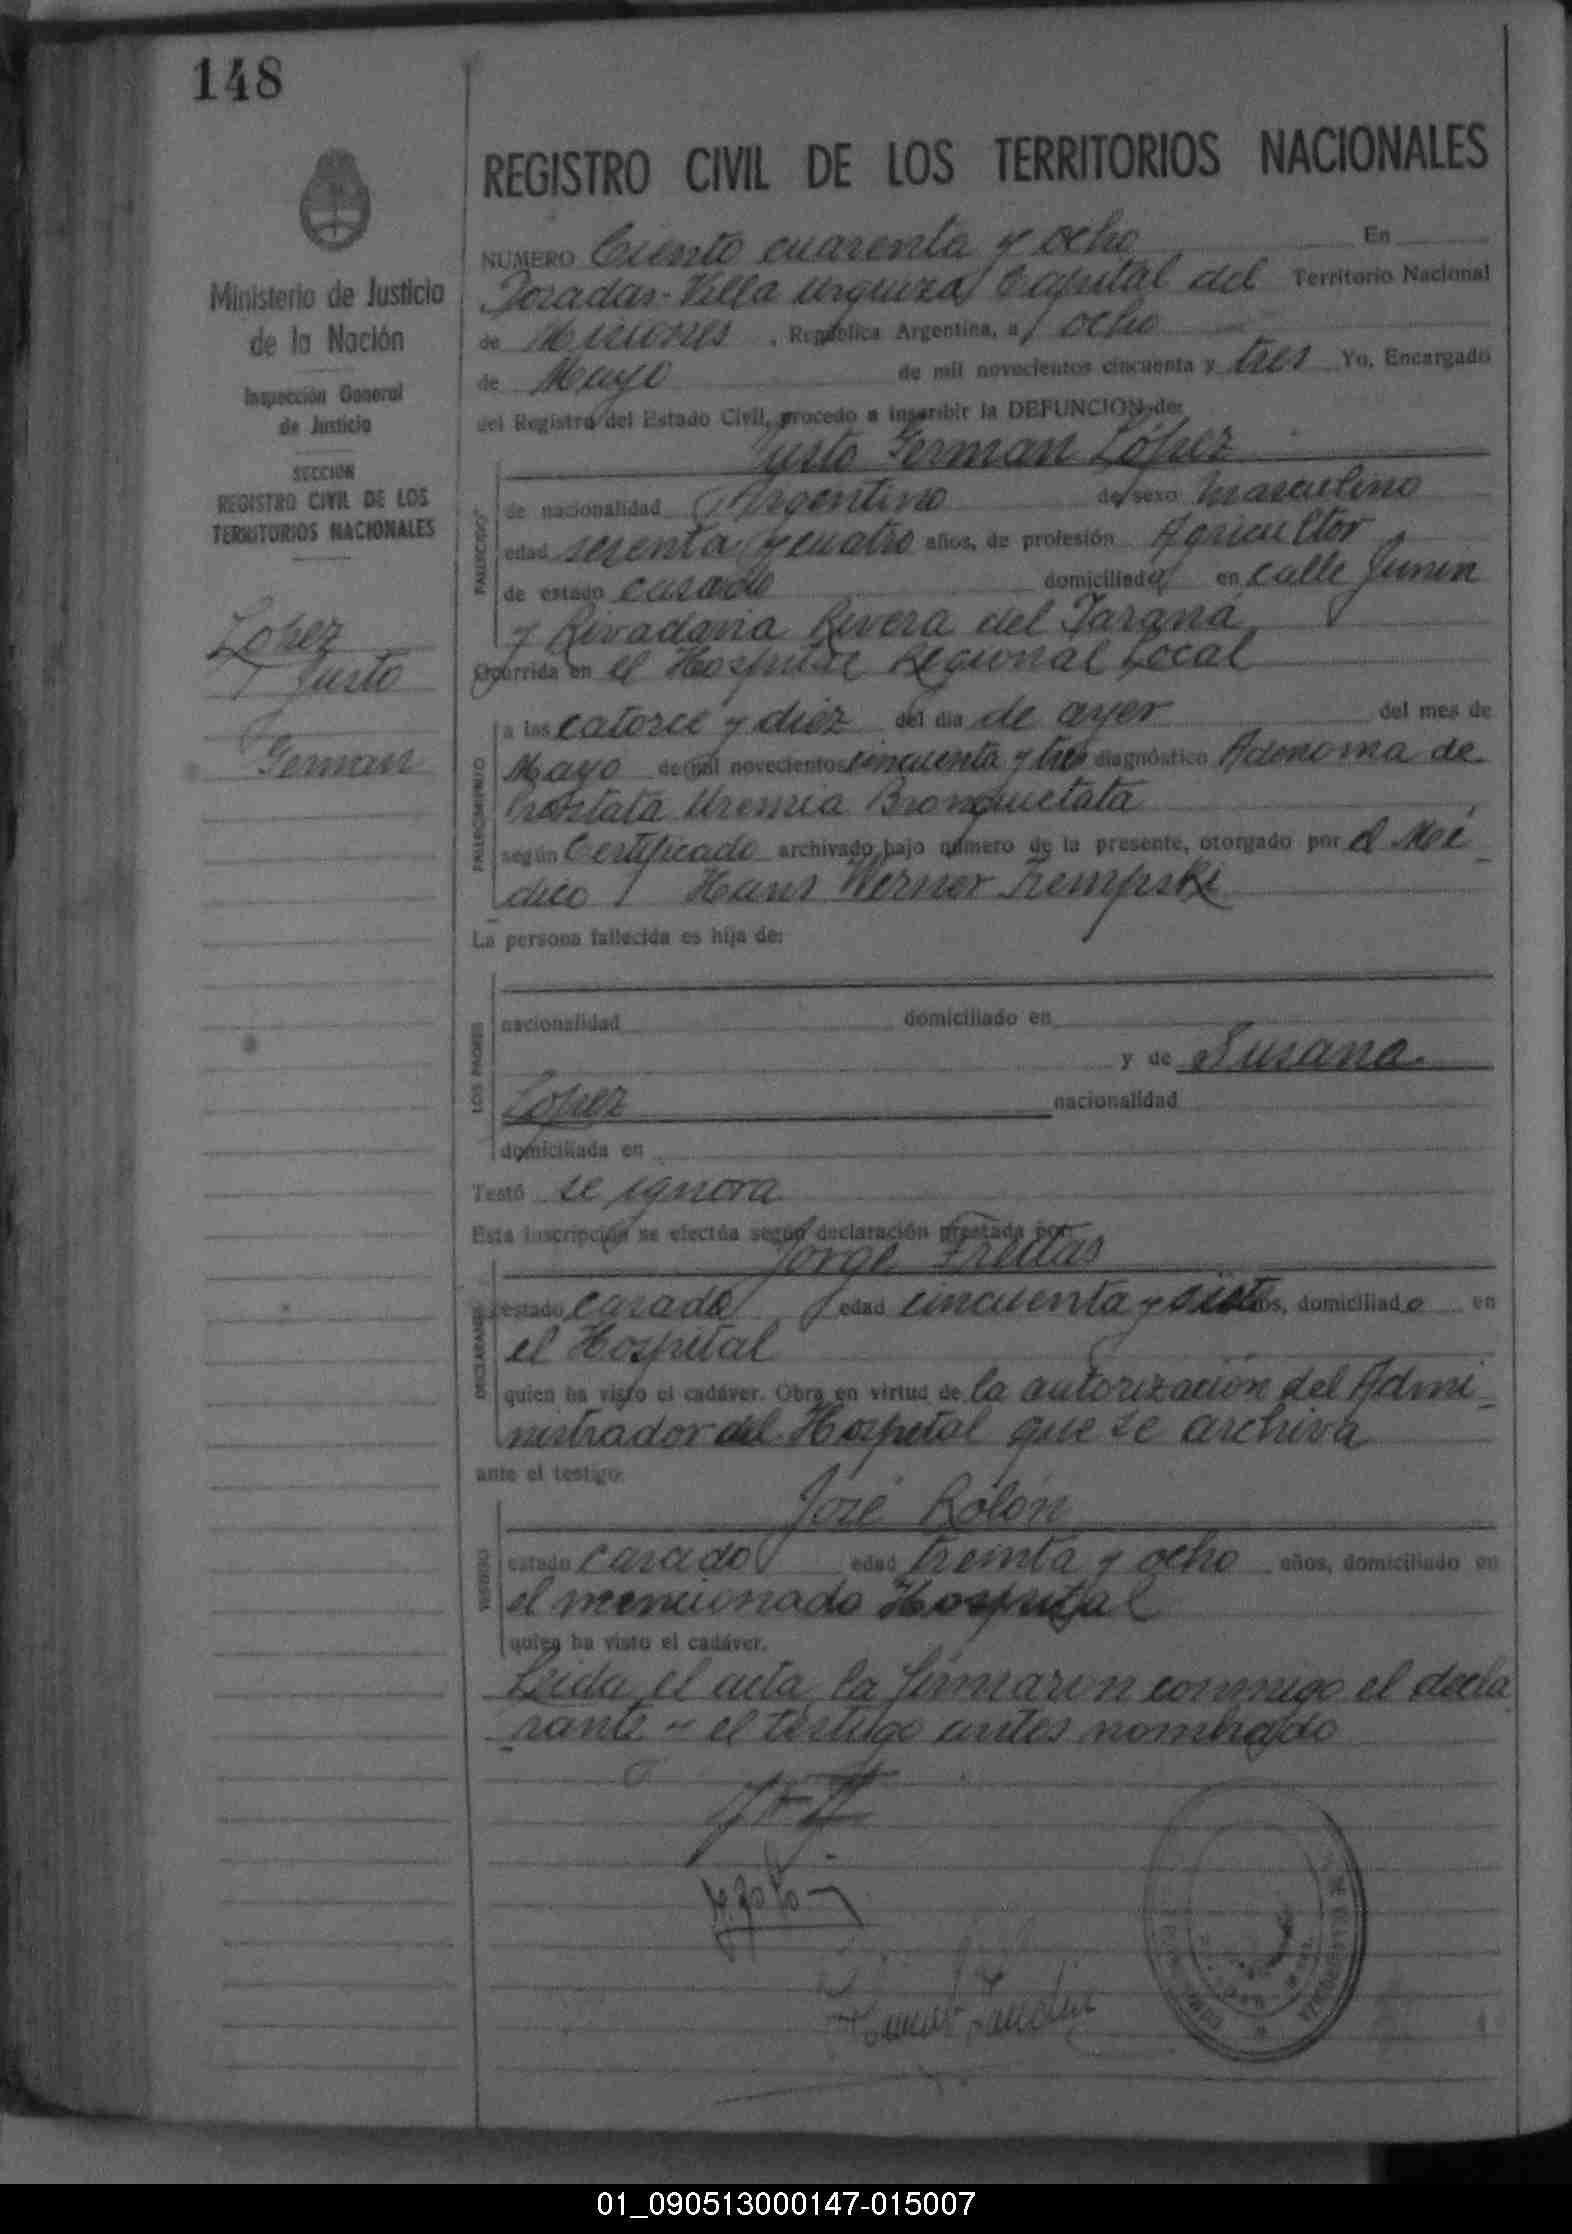 148
REGISTRO CIVIL DE LOS TERRITORIOS NACIONALES
Ministerio de Justicia
de la Nación
Inspección General
de Justicia
SECCION
REGISTRO CIVIL DE LOS
TERRITORIOS NACIONALES
Lopez
Justo
German
NUMERO Ciento cuarenta y ocho En
Posadas - Villa Urquiza Capital del Territorio Nacional
de Misiones, República Argentina, a ocho
de Mayo de mil novecientos cincuenta y tres Yo, Encargado
del Registro del Estado Civil, procedo a inscribir la DEFUNCION de:
Justo German López
FALLECIDO
de nacionalidad Argentino de sexo masculino
edad y cuatro años, de profesión Agricultor
de estado casado domiciliado en calle Junin
y Rivadavia Rivera del Paraná
Ocurrida en el Hospital Regional Local
FALLECIMIENTO
a las catorce y diez del dia de ayer del mes de
Mayo de mil novecientos cincuenta y tres diagnóstico Adenoma de
Prostata Uremia
según Certificado archivado bajo número de la presente, otorgado por el Mé-
dico Hans Werner
La persona fallecida es hija de:
LOS PADRES
nacionalidad domiciliado en
y de Susana
López nacionalidad
domiciliada en
Testó se ignora
Esta inscripción se efectúa según declaración prestada por
Jorge Freitas
DECLARANTE
estado casado edad cincuenta y años, domiciliado en
el Hospital
quien ha visto el cadáver. Obra en virtud de la autorización del Admi-
nistrador del Hospital que se archiva
ante el testigo:
José Rolón
TESTIGO
estado casado edad treinta y ocho años, domiciliado en
el mencionado Hospital
quien ha visto el cadáver.
Leida el acta la firmaron conmigo el decla
rante el testigo antes nombrado
01_090513000147-015007